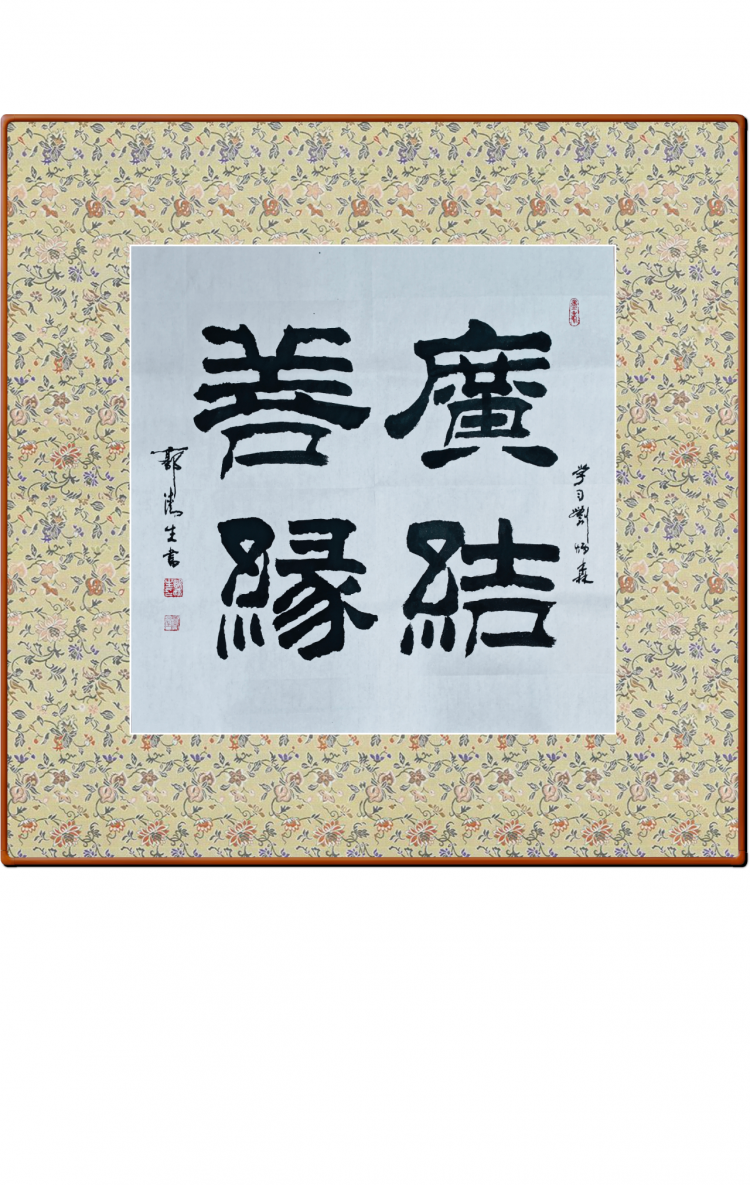 学习劉炳森
廣結
善緣
郭 生書